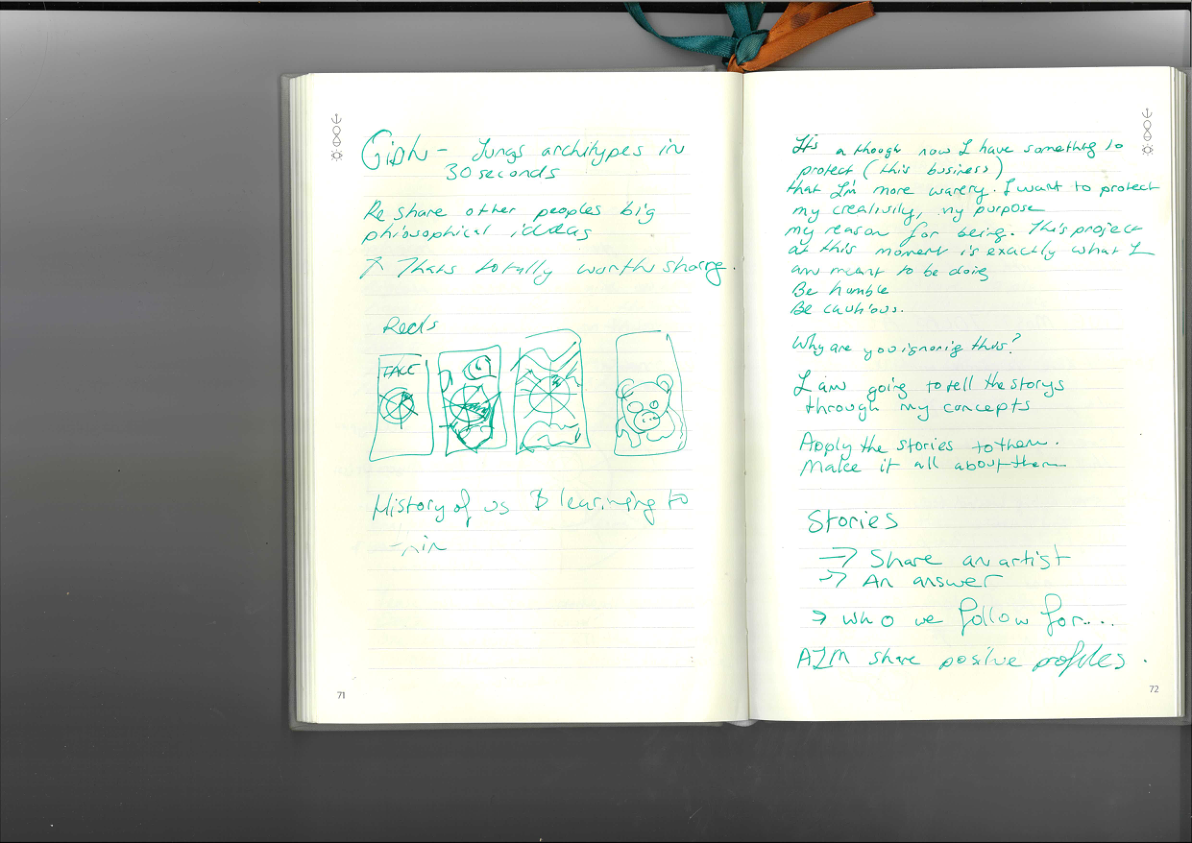 Jungs architypes in
30 seconds
Re share other peoples big
phiosophical ideas
↗ Thats totally worth sharing.
Reels
History of us & learning to
71
Its a though now I have something to
protect (this business)
that I'm more warery. I want to protect
my creativity, my purpose
my reason for being. This project
at this moment is exactly what I
am meant to be doing
Be humble
Be cautious.
Why are you ignorig this?
I am going to tell the storys
through my concepts
Apply the stories to them.
Make it all about them
Stories
→ Share an artist
→ An answer
→ who we follow for....
AIM share positive profiles.
72